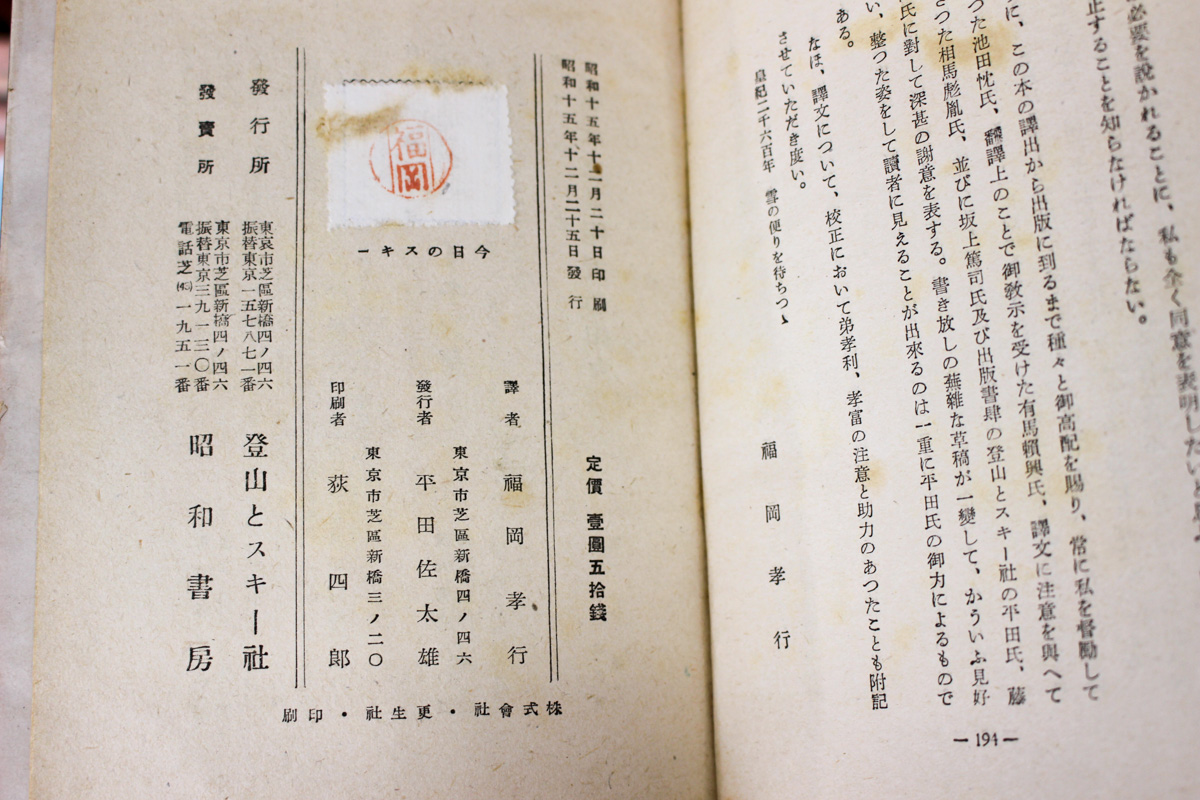 必要を說かれることに、私も全く同意を表明したいと思
正することを知らなければならない。
に、この本の譯出から出版に到るまで種々と御高配を賜り、常に私を督勵して
つた池田忱氏、飜譯上のことで御敎示を受けた有馬賴興氏、譯文に注意を與へて
さつた相馬彪胤氏、並びに坂上篤司氏及び出版書肆の登山とスキー社の平田氏、藤
氏に對して深甚の謝意を表する。書き放しの蕪雜な草稿が一變して、かういふ見好
い、整つた姿をして讀者に見えることが出來るのは一重に平田氏の御力によるもので
ある。
なほ、譯文について、校正において弟孝利、孝富の注意と助力のあつたことも附記
させていただき度い。
皇紀二千六百年 雪の便りを待ちつゝ
福岡孝行
— 194 —
昭和十五年十二月二十日印刷
昭和十五年十二月二十五日發行
定價 壹圓五拾錢
福岡
今日のスキー
譯者 福岡孝行
東京市芝區新橋四ノ四六
發行者 平田佐太雄
東京市芝區新橋三ノ二〇
印刷者 荻四郞
株式會社・更生社・印刷
東京市芝區新橋四ノ四六
發行所 登山とスキー社
振替東京一五七八七一番
東京市芝區新橋四ノ四六
發賣所 昭和書房
振替東京三九一三〇番
電話芝(43)一九五一番